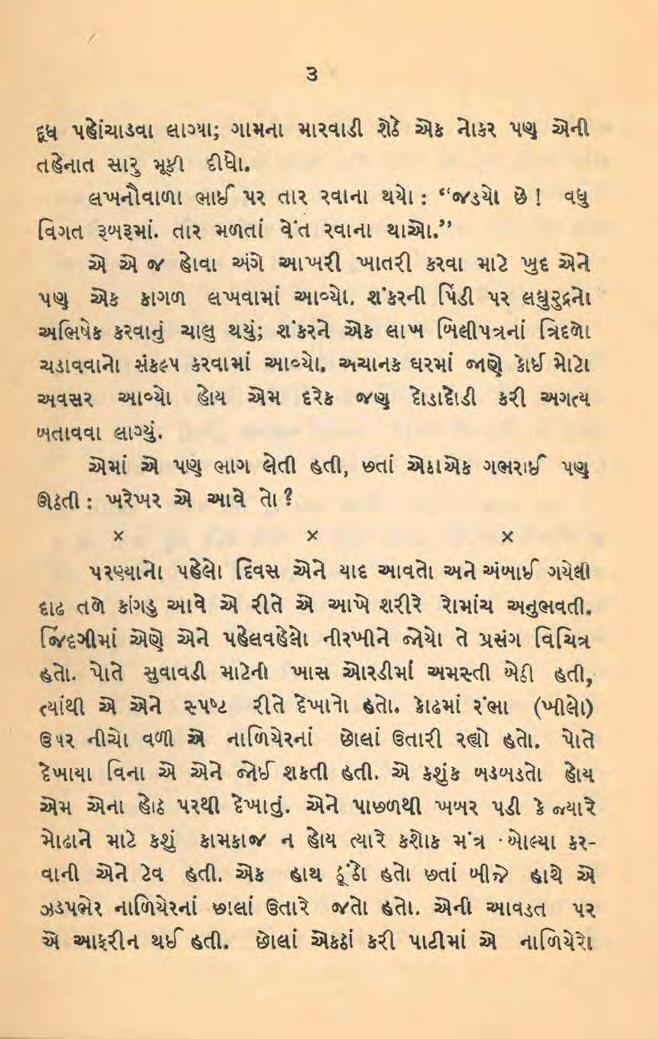 ૩
દૂધ પહોંચાડવા લાગ્યા; ગામના મારવાડી શેઠે એક નોકર પણ એની
તહેનાત સારુ મૂકી દીધો.
લખનૌવાળા ભાઈ પર તાર રવાના થયો : “જડ્યો છે ! વધુ
વિગત રૂબરૂમાં. તાર મળતાં વેંત રવાના થાઓ.”
એ એ જ હોવા અંગે આખરી ખાતરી કરવા માટે ખુદ એને
પણ એક કાગળ લખવામાં આવ્યો. શંકરની પિંડી પર લઘુરુદ્રનો
અભિષેક કરવાનું ચાલુ થયું; શંકરને એક લાખ બિલીપત્રનાં ત્રિદળો
ચડાવવાનો સંકલ્પ કરવામાં આવ્યો. અચાનક ઘરમાં જાણે કોઈ મોટો
અવસર આવ્યો હોય એમ દરેક જણ દોડાદોડી કરી અગત્ય
બતાવવા લાગ્યું.
એમાં એ પણ ભાગ લેતી હતી, છતાં એકાએક ગભરાઈ પણ
ઊઠતી : ખરેખર એ આવે તો ?
× × ×
પરણ્યાનો પહેલો દિવસ એને યાદ આવતો અને અંબાઈ ગયેલી
દાઢ તળે કાંગડુ આવે એ રીતે એ આખે શરીરે રોમાંચ અનુભવતી.
જિંદગીમાં એણે એને પહેલવહેલો નીરખીને જોયો તે પ્રસંગ વિચિત્ર
હતો. પોતે સુવાવડી માટેની ખાસ ઓરડીમાં અમસ્તી બેઠી હતી,
ત્યાંથી એ એને સ્પષ્ટ રીતે દેખાતો હતો. કોઢમાં રંભા (ખીલો)
ઉપર નીચો વળી એ નાળિયેરનાં છોલાં ઉતારી રહ્યો હતો. પોતે
દેખાયા વિના એ એને જોઈ શકતી હતી. એ કશુંક બડબડતો હોય
એમ એના હોઠ પરથી દેખાતું. એને પાછળથી ખબર પડી કે જ્યારે
મોઢાને માટે કશું કામકાજ ન હોય ત્યારે કશોક મંત્ર બોલ્યા કર-
વાની એને ટેવ હતી. એક હાથ ઠૂંઠો હતો છતાં બીજે હાથે એ
ઝડપભેર નાળિયેરનાં છાલાં ઉતારે જતો હતો. એની આવડત પર
એ આફરીન થઈ હતી. છોલાં એકઠાં કરી પાટીમાં એ નાળિયેરો